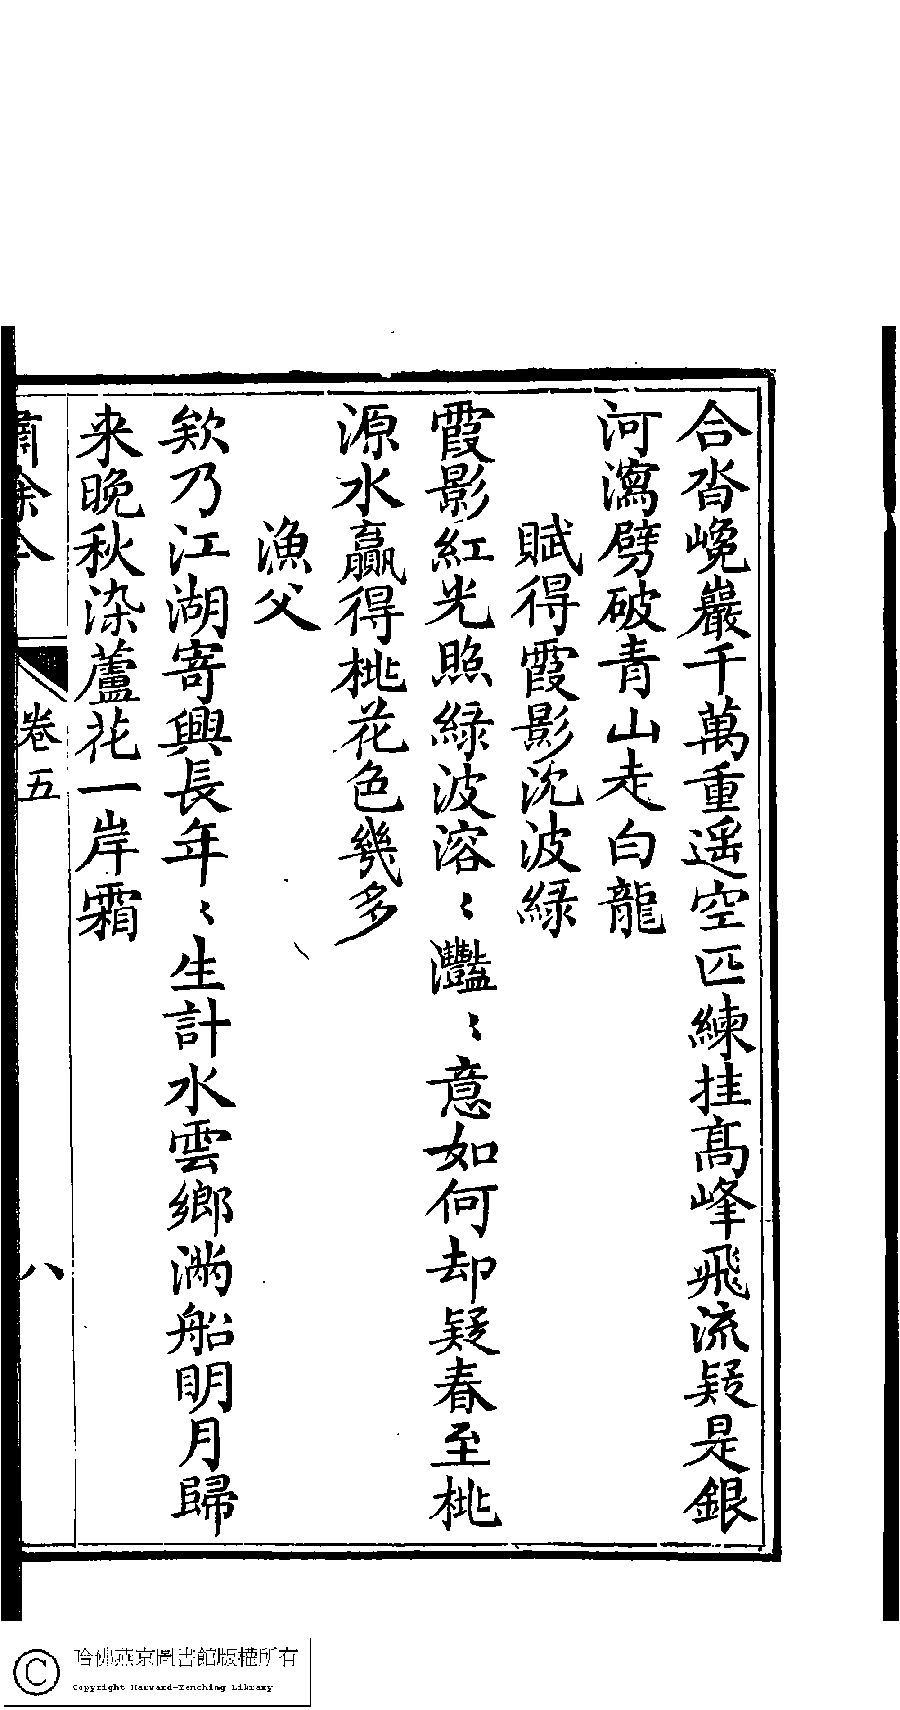 合沓巉巖千萬重遥空匹練挂髙峰飛流疑是銀
河瀉劈破青山走白龍
賦得霞影沈波綠
霞影紅光照綠波溶〻灩〻意如何却疑春至桃
源水贏得桃花色幾多
漁父
欸乃江湖寄興長年〻生計水雲鄉滿船明月歸
来晚秋染蘆花一岸霜
卷五
八
哈佛燕京圖書館版權所有
Copyright Harvard-Yenching Library